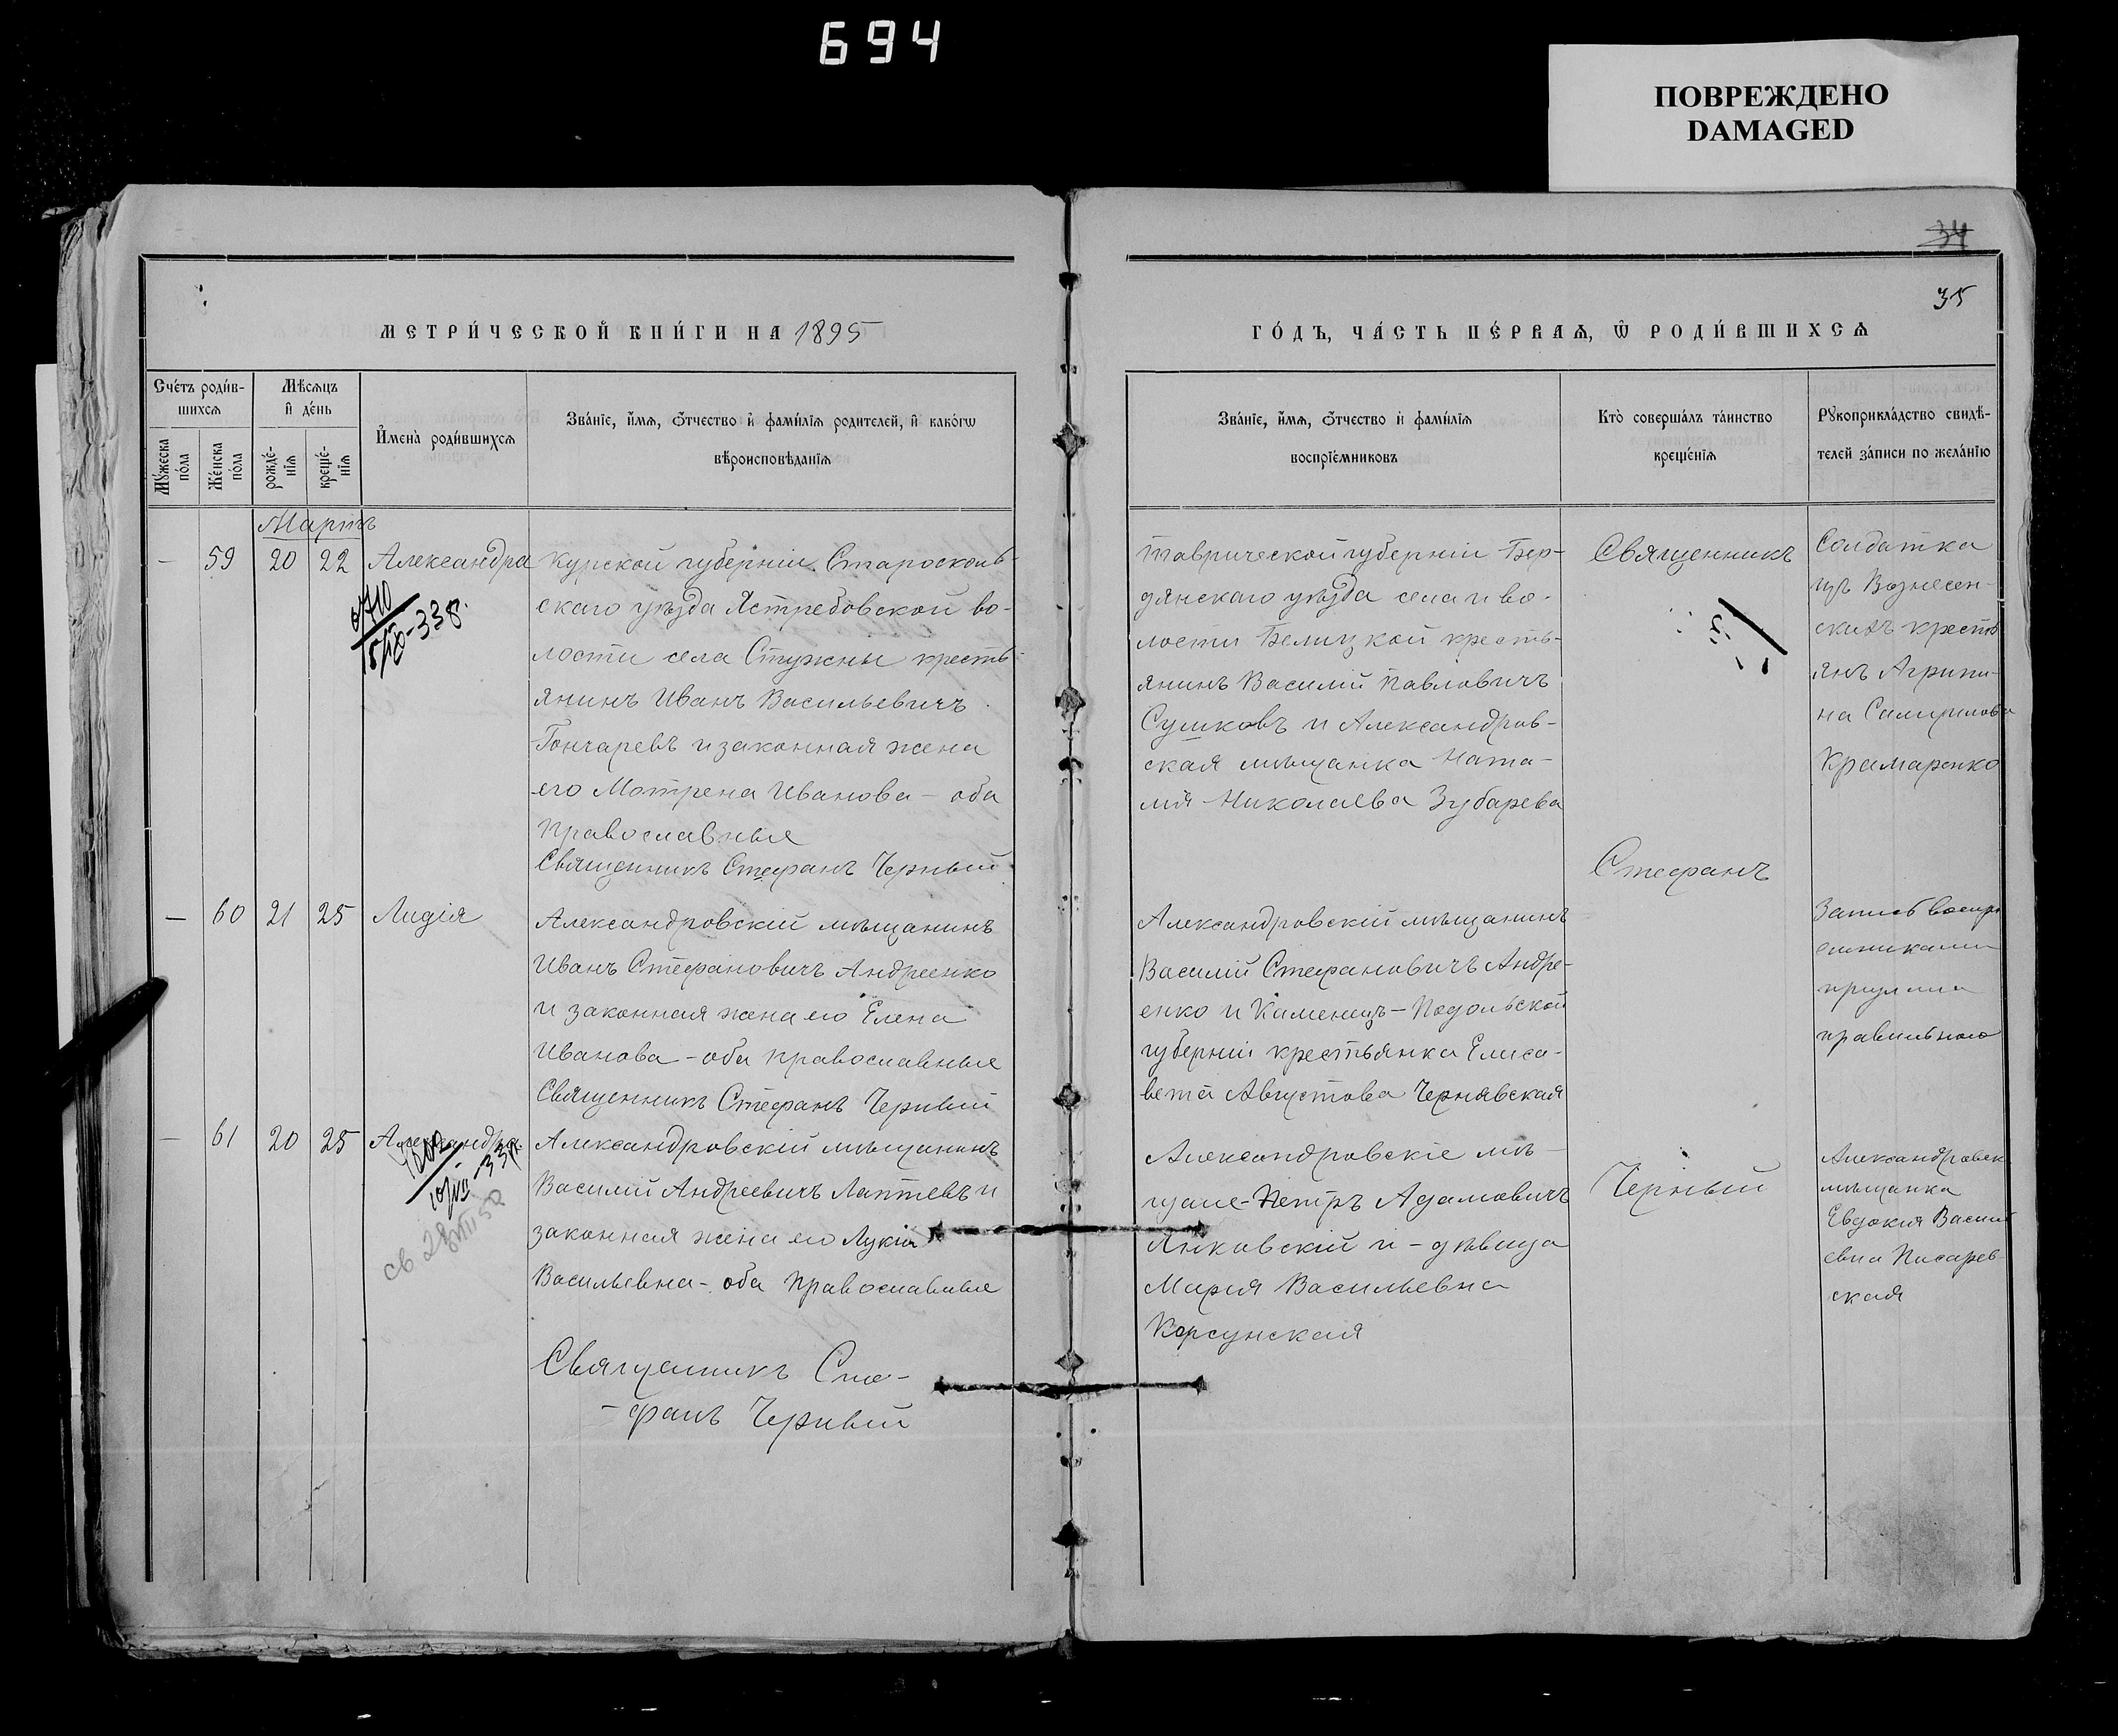 694
ПОВРЕЖДЕНО
DAMAGED
34
35
МЕТРИ́ЧЕСКОЙ КНИ́ГИ НА 1895
ГО́ДЪ, ЧА́СТЬ ПЕ́РВАѦ, Ѽ РОДИ́ВШИХСѦ
Сче́тъ роди́в-
шихсѧ
Мꙋ́жеска
по́ла
Же́нска
по́ла
Мѣсѧцъ
и҆ де́нь
рожде́-
нїѧ
креще́-
нїѧ
И҆мена̀ роди́вшихсѧ
Зва́нїе, и҆́мѧ, ѻ҆́тчество и҆ фами́лїѧ родителей, и҆ како́гѡ
вѣроисповѣданїѧ
Зва́нїе, и҆́мѧ, ѻ҆́тчество и҆ фами́лїѧ
воспрїе́мниковъ
Кто̀ соверша́лъ та́инство
креще́нїѧ
Рꙋкоприкла́дство свидѣ́-
телей за́писи по жела́нїю
Мартъ
— 59 20 22 Александра
Курской губерніи Староскольс-
скаго уѣзда Ястребовской во-
лости села Стужны кресть-
янинъ Иванъ Васильевичъ
Гончаревъ и законная жена
его Мотрена Иванова – оба
православные
Священникъ Стефанъ Черный
Таврической губерніи Бер-
дянскаго уѣзда села и во-
лости Бело́цкой кресть-
янинъ Василій Павловичъ
Сушковъ и Александров-
ская мѣщанка Ната-
лія Николаева Зубарева
Священникъ
Солдатка
изъ Вознесен-
скихъ кресть
янъ Агрипи-
на
Крамаренко
15/IV-338.
— 60 21 25 Лидія
Александровскій мѣщанинъ
Иванъ Стефановичъ Андреенко
и законная жена его Елена
Иванова – оба православные
Священникъ Стефанъ Черный
Александровскій мѣщанинъ
Василій Стефановичъ Андре-
енко и Каменецъ-Подольской
губерніи крестьянка Елиса-
вета Августова Чернявская
Стефанъ
Запись воспрі
емниками
правильною
— 61 20 25 Александра
Александровскій мѣщанинъ
Василій Андреевичъ Лаптевъ и
законная жена его Лукія
Васильевна – оба православные
Священникъ Сте-
– фанъ Черный
Александровскіе мѣ-
щане – Петръ Адамовичъ
Янковскій и – дѣвица
Марія Васильевна
Корсунская
Черный
Александровск
мѣщанка
Евдокія Васил
евна Писарев-
ская